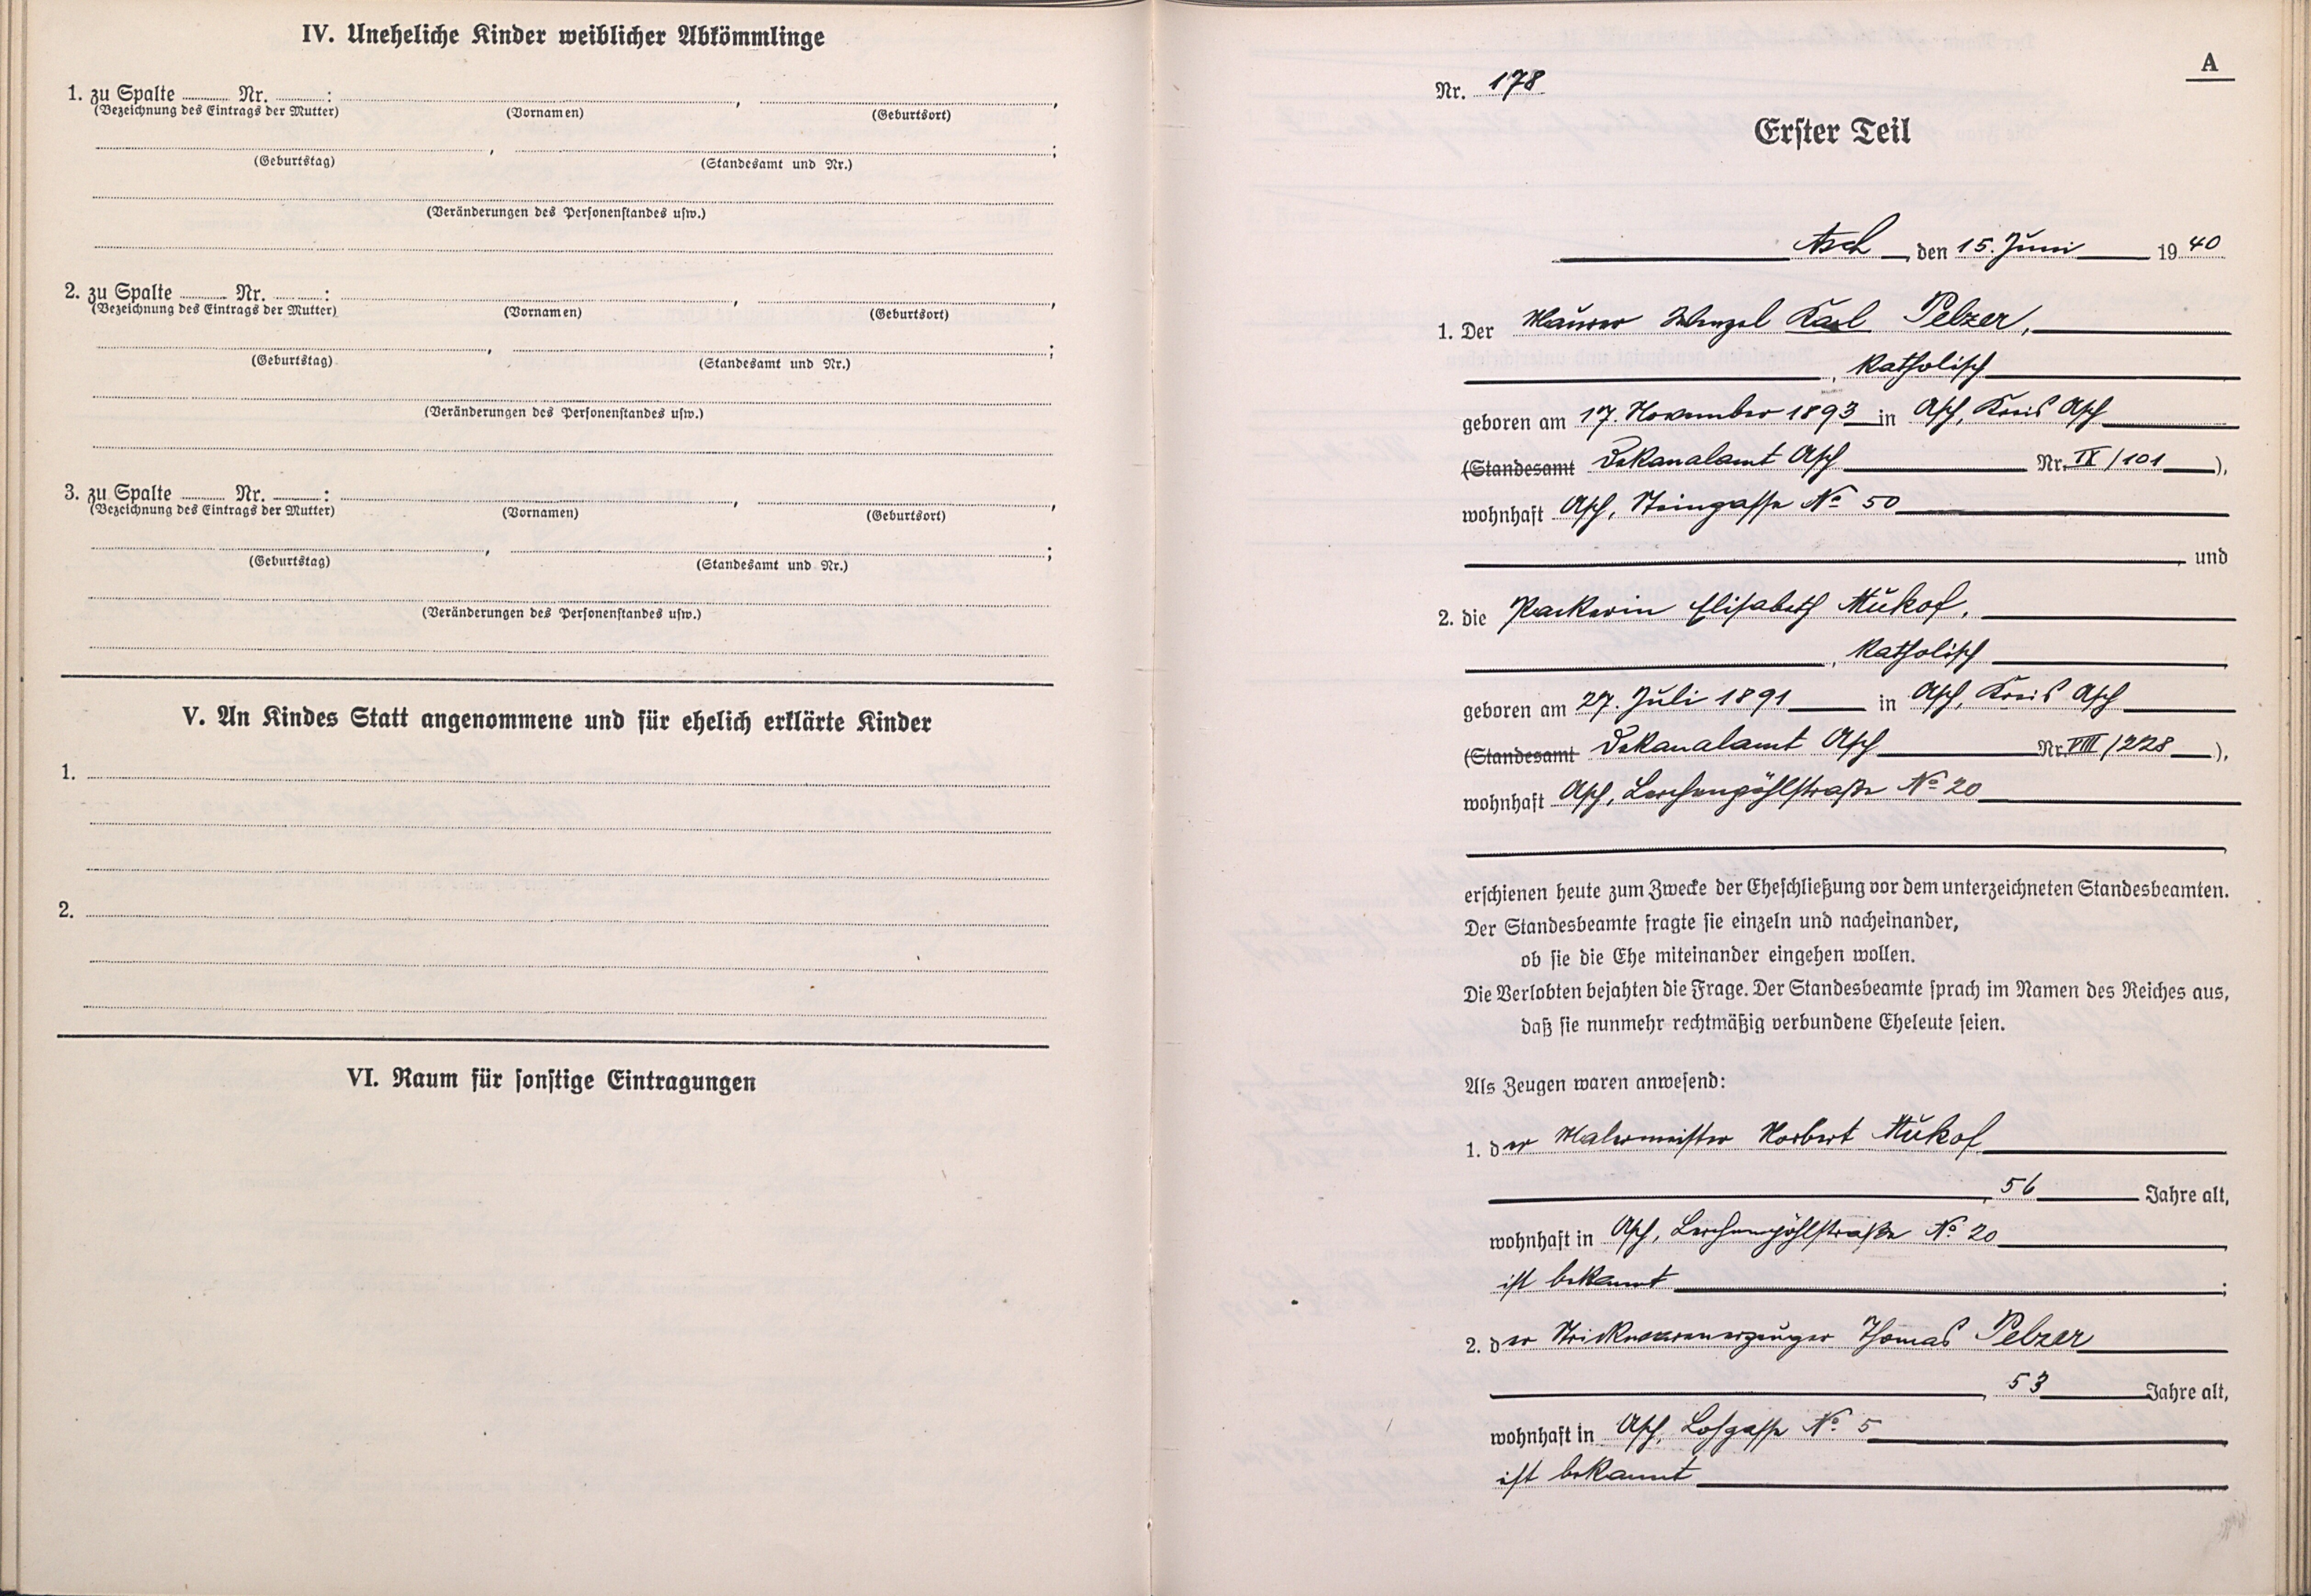 IV. Uneheliche Kinder weiblicher Abkömmlinge
1. zu Spalte ........ Nr. ........ :
(Bezeichnung des Eintrags der Mutter) (Vornamen) (Geburtsort)
(Geburtstag) (Standesamt und Nr.)
(Veränderungen des Personenstandes usw.)
2. zu Spalte ........ Nr. ........ :
(Bezeichnung des Eintrags der Mutter) (Vornamen) (Geburtsort)
(Geburtstag) (Standesamt und Nr.)
(Veränderungen des Personenstandes usw.)
3. zu Spalte ........ Nr. ........ :
(Bezeichnung des Eintrags der Mutter) (Vornamen) (Geburtsort)
(Geburtstag) (Standesamt und Nr.)
(Veränderungen des Personenstandes usw.)
V. An Kindes Statt angenommene und für ehelich erklärte Kinder
1.
2.
VI. Raum für sonstige Eintragungen
A
Nr. 178
Erster Teil
Asch, den 15. Juni 1940
1. Der Maurer Wenzel Karl Pelzer,
, katholisch
geboren am 17. November 1893 in Asch, Kreis Asch
(Standesamt Dekanalamt Asch Nr. IX/101),
wohnhaft Asch, Steingasse No 50
und
2. die Packerin Elisabeth Mükof,
, katholisch
geboren am 27. Juli 1891 in Asch, Kreis Asch
(Standesamt Dekanalamt Asch Nr. VIII/228),
wohnhaft Asch, Lerchenpöhlstraße No 20
erschienen heute zum Zwecke der Eheschließung vor dem unterzeichneten Standesbeamten.
Der Standesbeamte fragte sie einzeln und nacheinander,
ob sie die Ehe miteinander eingehen wollen.
Die Verlobten bejahten die Frage. Der Standesbeamte sprach im Namen des Reiches aus,
daß sie nunmehr rechtmäßig verbundene Eheleute seien.
Als Zeugen waren anwesend:
1. der Malermeister Norbert Mükof
, 56 Jahre alt,
wohnhaft in Asch, Lerchenpöhlstraße No 20
ist bekannt ;
2. der Strickwarenerzeuger Thomas Pelzer
, 53 Jahre alt,
wohnhaft in Asch, Lohgasse No 5
ist bekannt